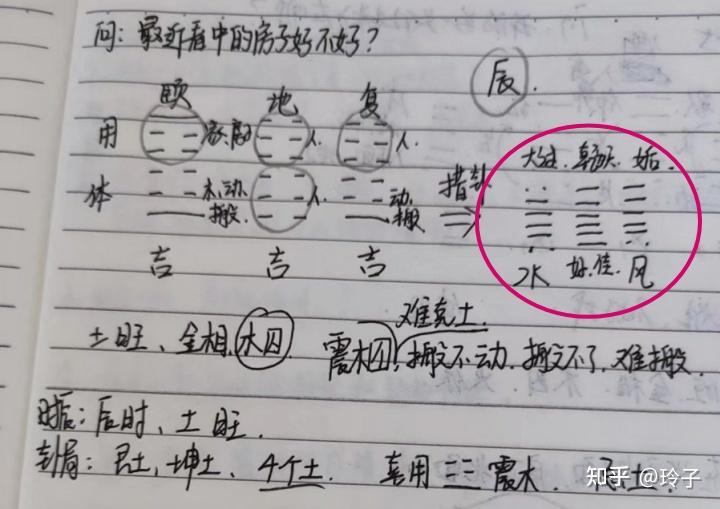 问：最近看中的房子好不好？
辰.
颐 地 复
用 家 人 人
体 木动 搬 人 动 搬 错卦
大过 乾 姤
吉 吉 吉
水 好.佳. 风
难克土
土旺、金相、木囚 震木囚，搬不动. 搬不了、难搬
时辰：辰时、土旺.
卦局：艮土、坤土、4个土. 喜用 震木.
知乎 @玲子